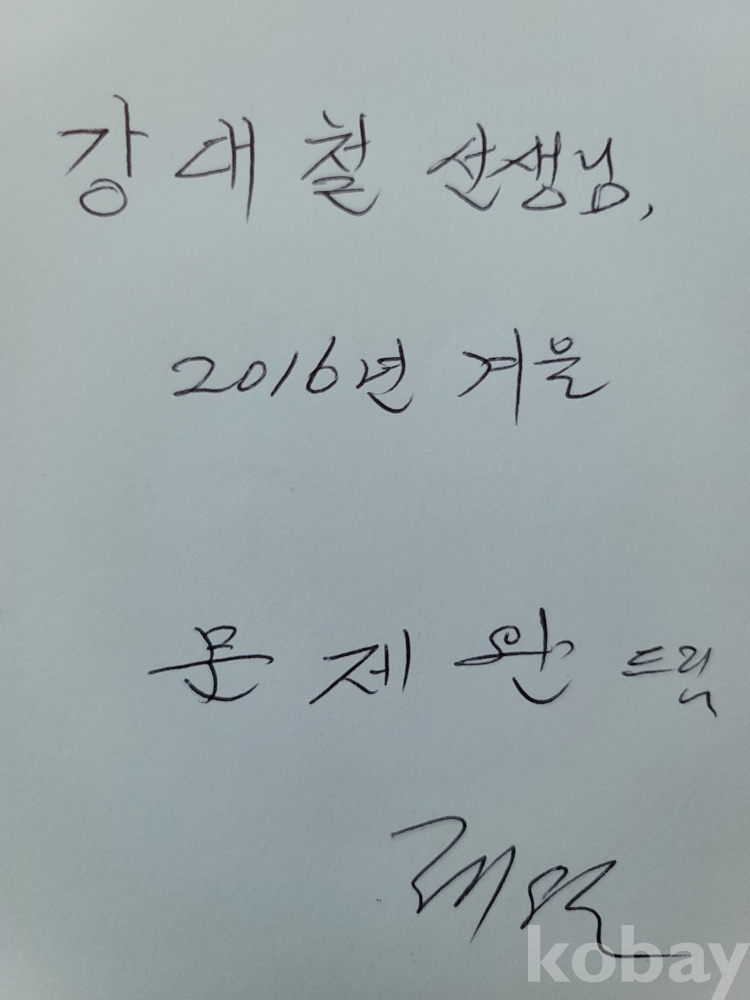 강대철 선생님,
2016년 겨울
문제완 드림
kobay